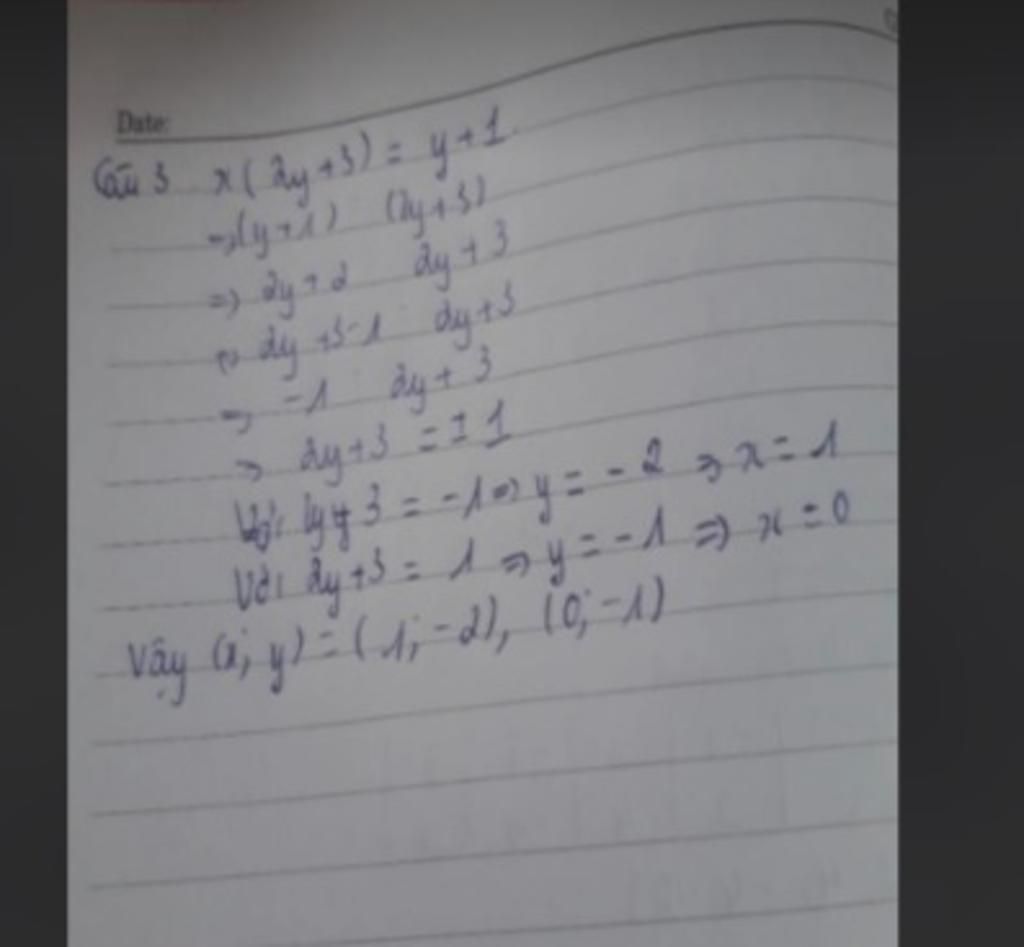 Date:
Câu 3 x(2y+3) = y+1
=>(y+1) (2y+3)
=> 2y+2 2y+3
=> 2y+3-1 2y+3
=> -1 2y+3
=> 2y+3 = ±1
Với 2y+3 = -1 => y = -2 => x = 1
Với 2y+3 = 1 => y = -1 => x = 0
Vậy (x; y) = (1; -2), (0; -1)